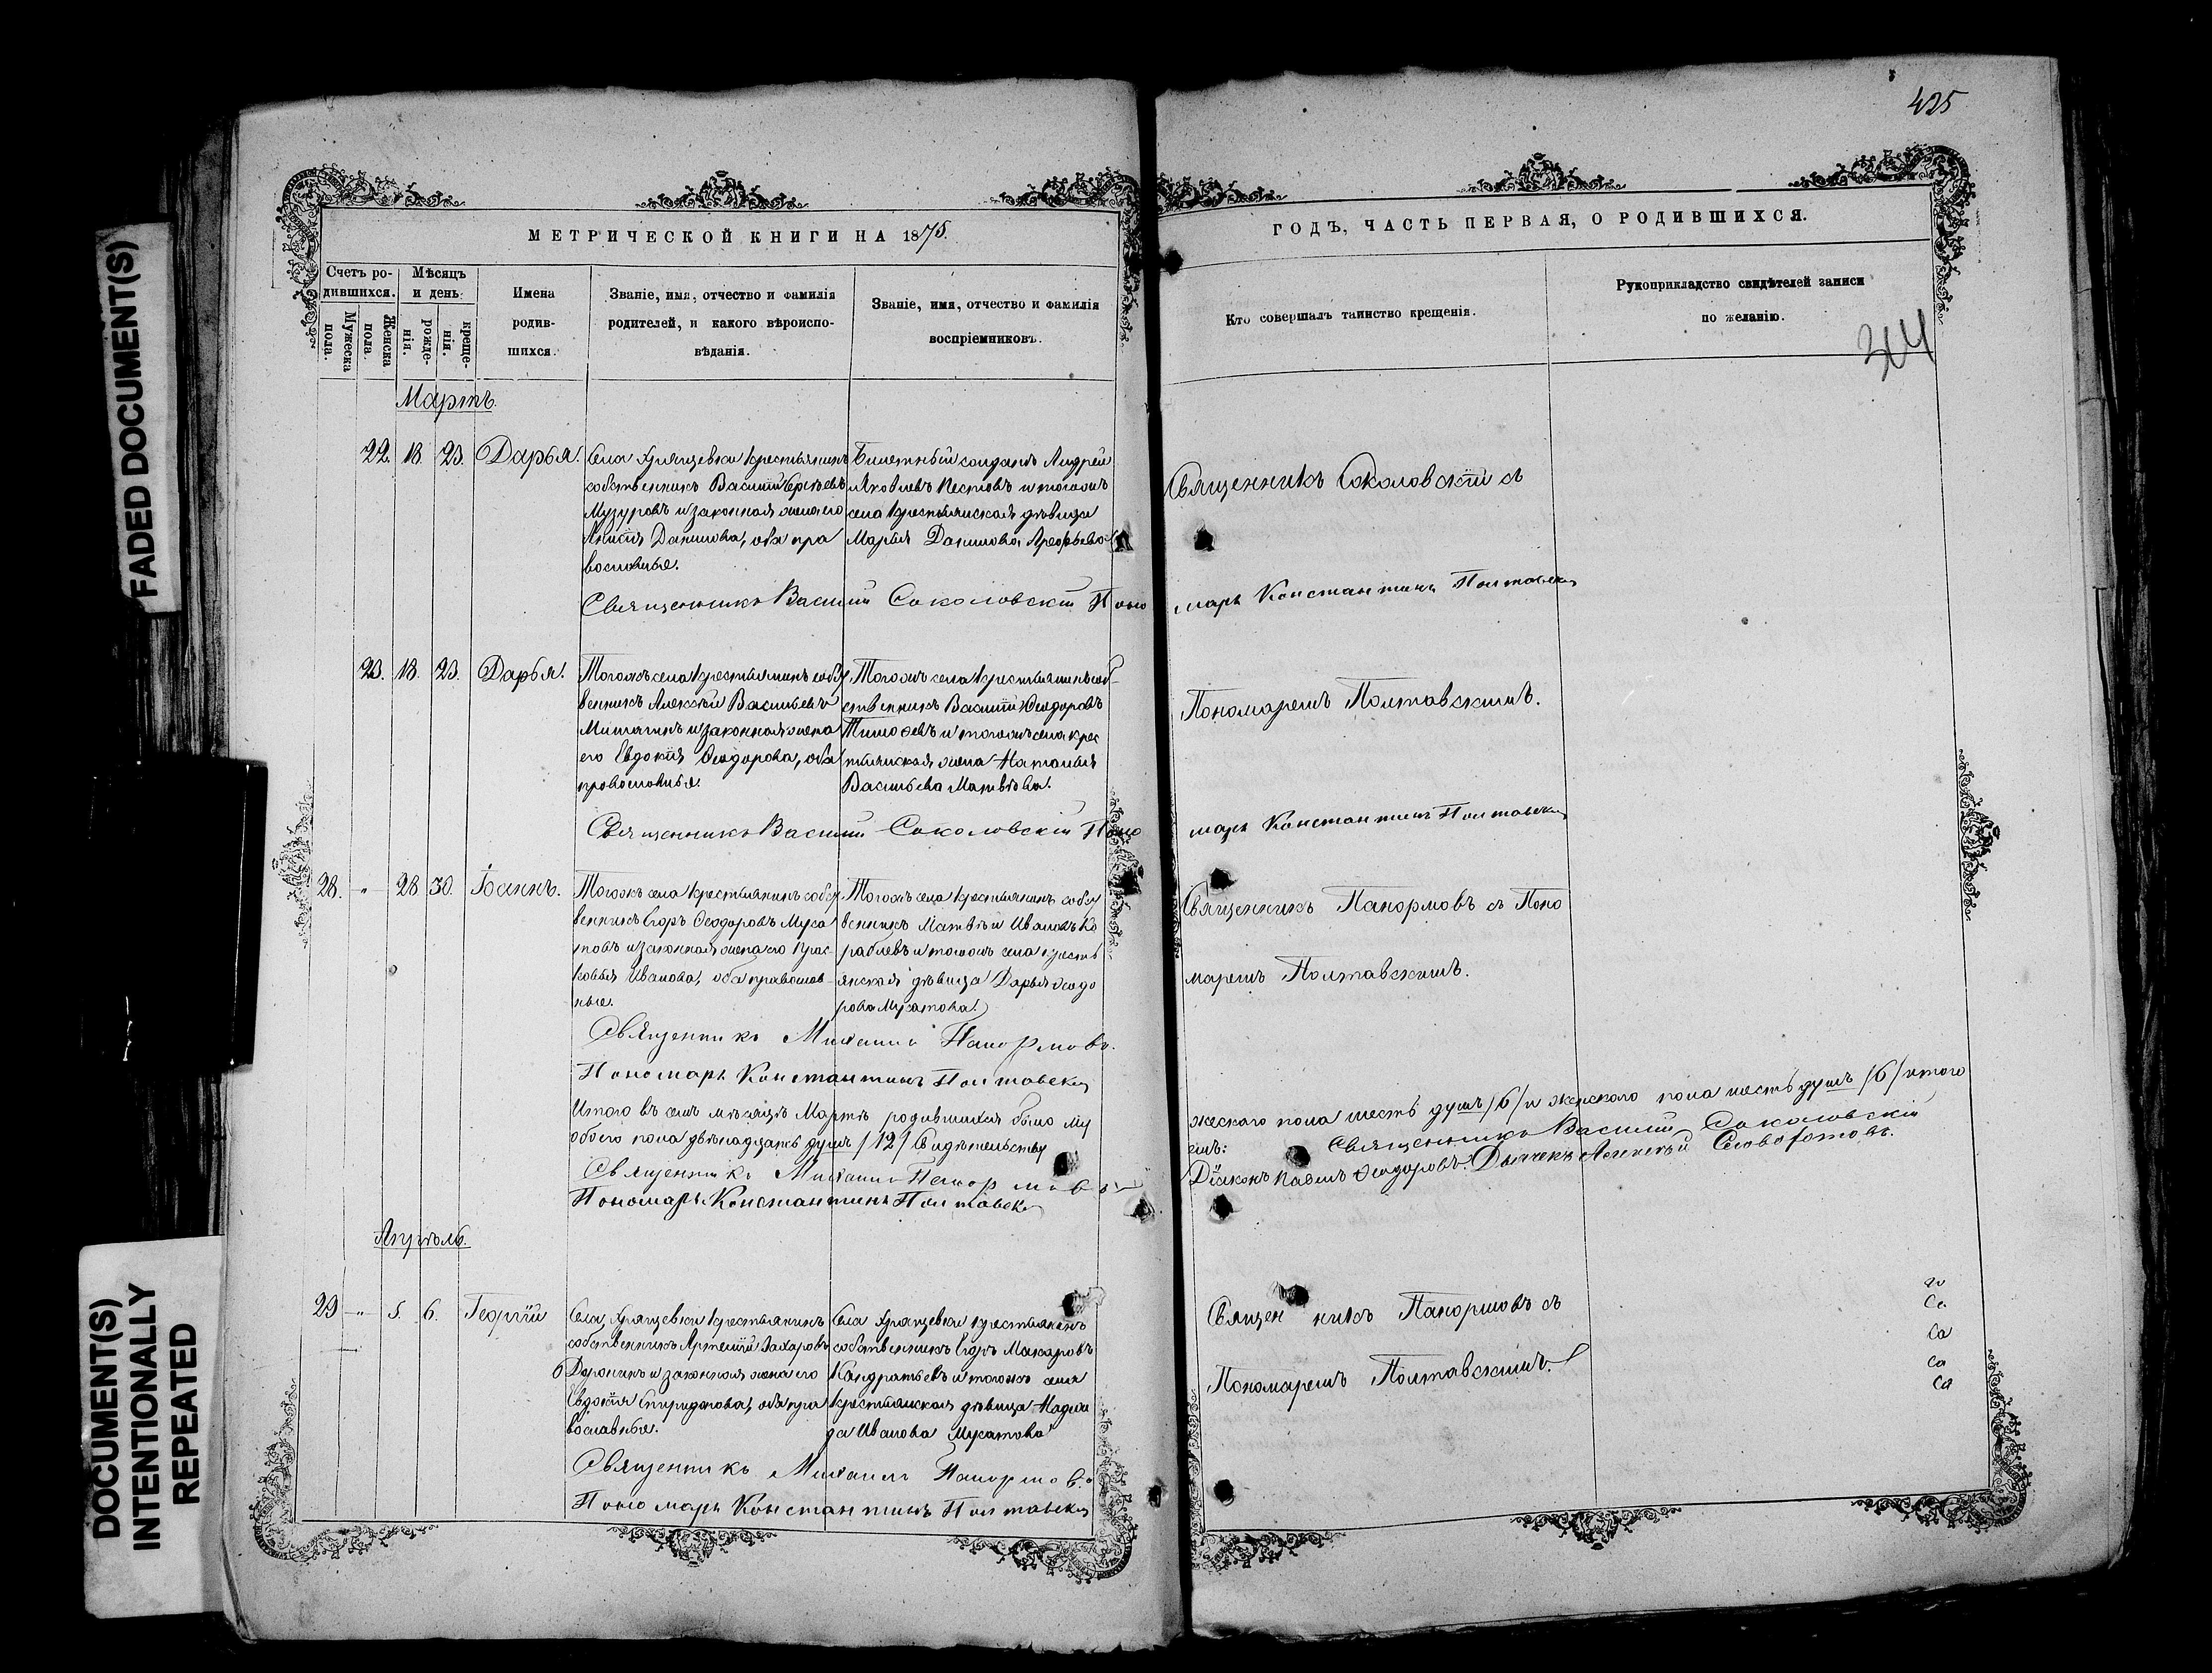 425
FADED DOCUMENT(S)
DOCUMENT(S)
INTENTIONALLY
REPEATED
МЕТРИЧЕСКОЙ КНИГИ НА 1875.
ГОДЪ, ЧАСТЬ ПЕРВАЯ, О РОДИВШИХСЯ.
Счетъ ро-
дившихся.
Мужеска
пола.
Женска
пола.
Мѣсяцъ
и день
рожде-
нія.
креще-
нія.
Имена
родив-
шихся.
Званіе, имя, отчество и фамилія
родителей, и какого вѣроиспо-
вѣданія.
Званіе, имя, отчество и фамилія
воспріемниковъ.
Кто совершалъ таинство крещенія.
Рукоприкладство свидѣтелей записи
по желанію.
314
Мартъ.
22. 18. 23. Дарья.
Села Хрящевки крестьянинъ
собственникъ Василій
Музуровъ и законная жена его
Данилова, оба пра
вославные.
Билетный солдатъ Андрей
Яковлевъ и тогожъ
села крестьянская дѣвица
Марья Данилова
Священникъ Соколовскій съ
Священникъ Василій Соколовскій Поно
марь Константинъ Полтавскій
23. 18. 23. Дарья.
Тогожъ села крестьянинъ собст
венникъ Алексѣй Васильевъ
и законная жена
его Евдокія Ѳеодорова, оба
православные.
Тогожъ села крестьянинъ соб-
ственникъ Василій Ѳеодоровъ
Тимоѳевъ и тогожъ села крес
тьянская жена Наталья
Васильева Матвѣева.
Пономаремъ Полтавскимъ.
Священникъ Василій Соколовскій Поно
марь Константинъ Полтавскій
28. " 28 30. Іоаннъ.
Тогожъ села крестьянинъ собст
венникъ Егоръ Ѳеодоровъ Муса
товъ и законная жена его Прас-
ковья Иванова, оба православ-
ные.
Тогожъ села крестьянинъ собст
венникъ Матвѣй Ивановъ Ко
раблевъ и тогожъ села кресть
янская дѣвица Дарья Ѳеодо
рова Мусатова.
Священникъ Панормовъ съ Поно
маремъ Полтавскимъ.
Священникъ Михаилъ Панормовъ.
Пономарь Константинъ Полтавскій
Итого въ семъ мѣсяцѣ Мартѣ родившихся было му
жескаго пола шесть душъ /6/ и женскаго пола шесть душъ /6/ итого
обоего пола двѣнадцать душъ /12/ Свидѣтельству
емъ: Священникъ Василій Соколовскій
Священникъ Михаилъ Панормовъ
Діаконъ Павелъ Ѳеодоровъ. Дьячекъ Алексѣй
Пономарь Константинъ Полтавскій
Апрѣль.
29 " 5. 6. Георгій
Села Хрящевки крестьянинъ
собственникъ Артемій Захаровъ
Доронинъ и законная жена его
Евдокія Спиридонова, оба пра
вославные.
Села Хрящевки крестьянинъ
собственникъ Егоръ Макаровъ
Кандратьевъ и тогожъ села
крестьянская дѣвица Надеж
да Иванова Мусатова
Священникъ Панормовъ съ
Пономаремъ Полтавскимъ.
Священникъ Михаилъ Панормовъ.
Пономарь Константинъ Полтавскій